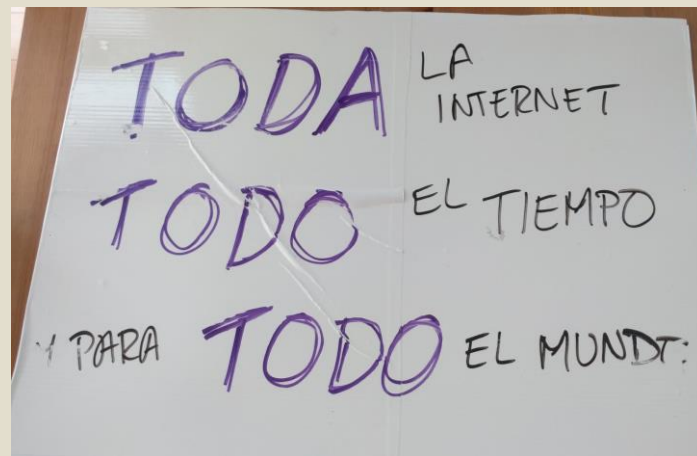 TODA LA
INTERNET
TODO EL TIEMPO
Y PARA TODO EL MUNDO